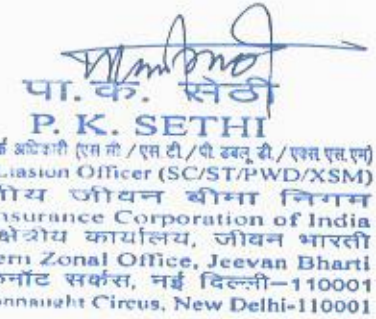 पा. के. सेठी
P. K. SETHI
अधिकारी (एस सी / एस.टी. / पी डबलू डी. / एक्स एस एम)
Liasion Officer (SC/ST/PWD/XSM)
जीवन बीमा निगम
Insurance Corporation of India
क्षेत्रीय कार्यालय, जीवन भारती
Zonal Office, Jeevan Bharti
सर्कस, नई दिल्ली-110001
Circus, New Delhi-110001